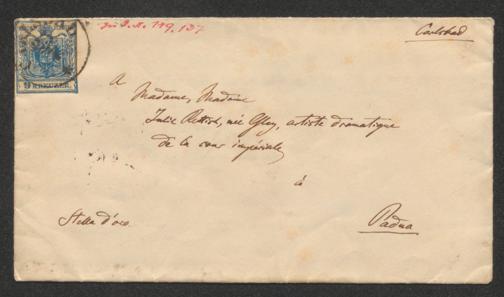 zu I. N. 149.137
Carlsbad
9 KREUZER
A
Madame, Madame
Julie Rettich, née Gley, artiste dramatique
de la cour impériale
à
Stella d'oro
Padua